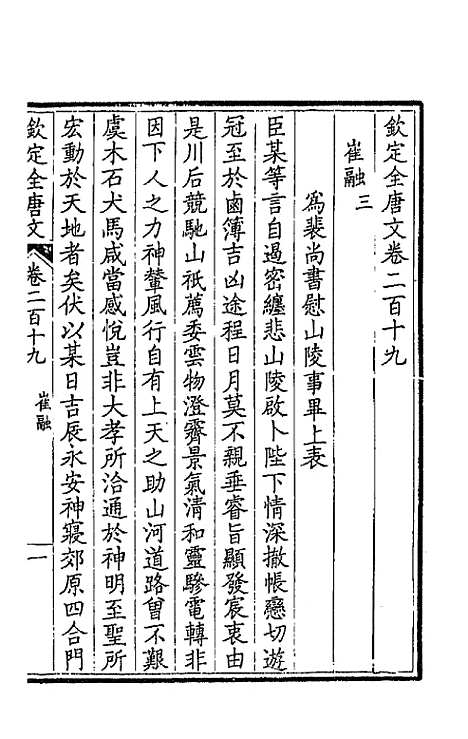 欽定全唐文卷二百十九
崔融三
為裴尚書慰山陵事畢上表
臣某等言自遏密纏悲山陵啟卜陛下情深撤帳戀切遊
冠至於鹵簿吉凶途程日月莫不親垂睿旨顯發宸衷由
是川后競馳山祇薦委雲物澄霽景氣清和靈驂電轉非
因下人之力神輦風行自有上天之助山河道路曾不艱
虞木石犬馬咸當感悅豈非大孝所洽通於神明至聖所
宏動於天地者矣伏以某日吉辰永安神寢郊原四合門
欽定全唐文
卷二百十九
崔融
一